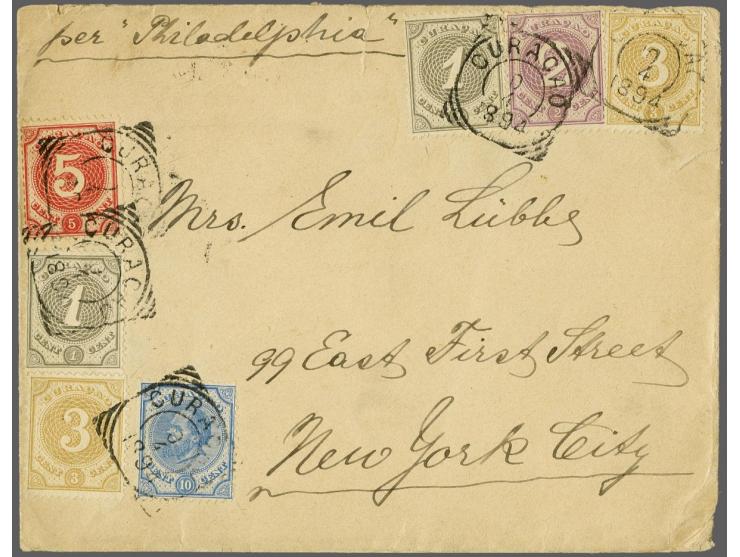 per "Philadelphia"
CURAÇAO
1
CENT
CURAÇAO
1894
CURAÇAO
3
CENT
1894
5
CENT
5
CURAÇAO
CURAÇAO
1
CENT
1
CURAÇAO
3
CENT CENT
3
CURAÇAO
CENT CENT
10
Mrs. Emil Lübbs
99 East First Street
New York City